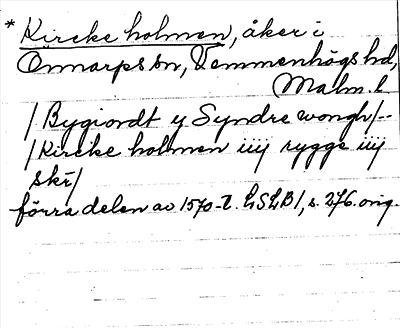 * Kircke holmen, åker i
Önnarps sn, Vemmenhögs hd,
Malm. l
/Bygiordt y Syndre wongh/--
/Kircke holmen iiij rygge iiij
skr/
förra delen av 1570-t. LSLB1, s. 276. orig.